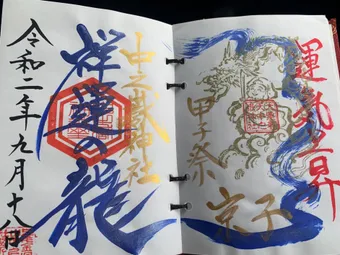 運気上昇
甲子祭
京子
中之嶽神社
祥運の龍
令和二年九月十八日